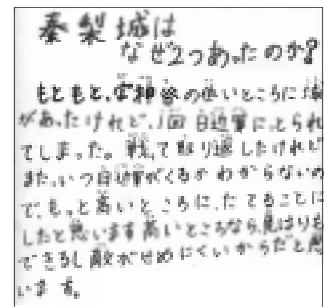 秦梨城は
なぜ2つあったのか?
もともと、安神釜の低いところに城
があったけれど、1回 日近軍にとられ
てしまった。戦って取り返したけれど
また、いつ日近軍がくるかわからないの
で、もっと高いところに、たてることに
したと思います高いところなら、見はりも
できるし敵がせめにくいからだと思
います。